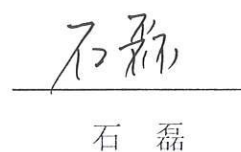 石磊
石 磊